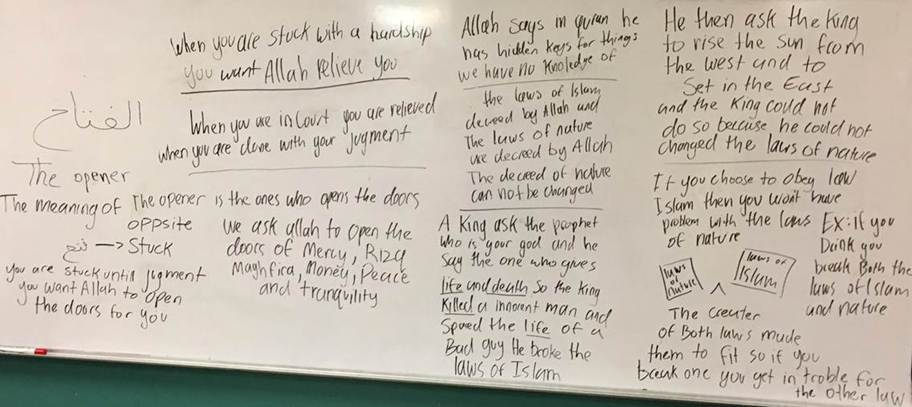 When you are stuck with a hardship
you want Allah relieve you
When you are in Court you are relieved
when you are done with your jugment
الفتاح
The opener
The meaning of The opener is the ones who opens the doors
oppsite
فتح → Stuck
you are stuck until jugment
you want Allah to open
the doors for you
We ask allah to open the
doors of Mercy, Rizq
Maghfira, Money, Peace
and tranquility
Allah says in quran he
has hidden keys for things
we have no knoledge of
the laws of Islam
decreed by Allah and
The laws of nature
are decreed by Allah
The decreed of nature
can not be changed
A King ask the prophet
who is your god and he
Say the one who gives
life and death so the king
Killed a innorent man and
Spared the life of a
Bad guy He broke the
laws of Islam
He then ask the King
to rise the Sun from
the west and to
Set in the East
and the King could not
do so because he could not
changed the laws of nature
If you choose to obey law
Islam then you won't have
problem with the laws
of nature
Ex: if you
Drink you
break Both the
laws of Islam
and nature
laws
of
nature
laws of
Islam
The creater
of Both laws made
them to fit so if you
break one you get in troble for
the other law